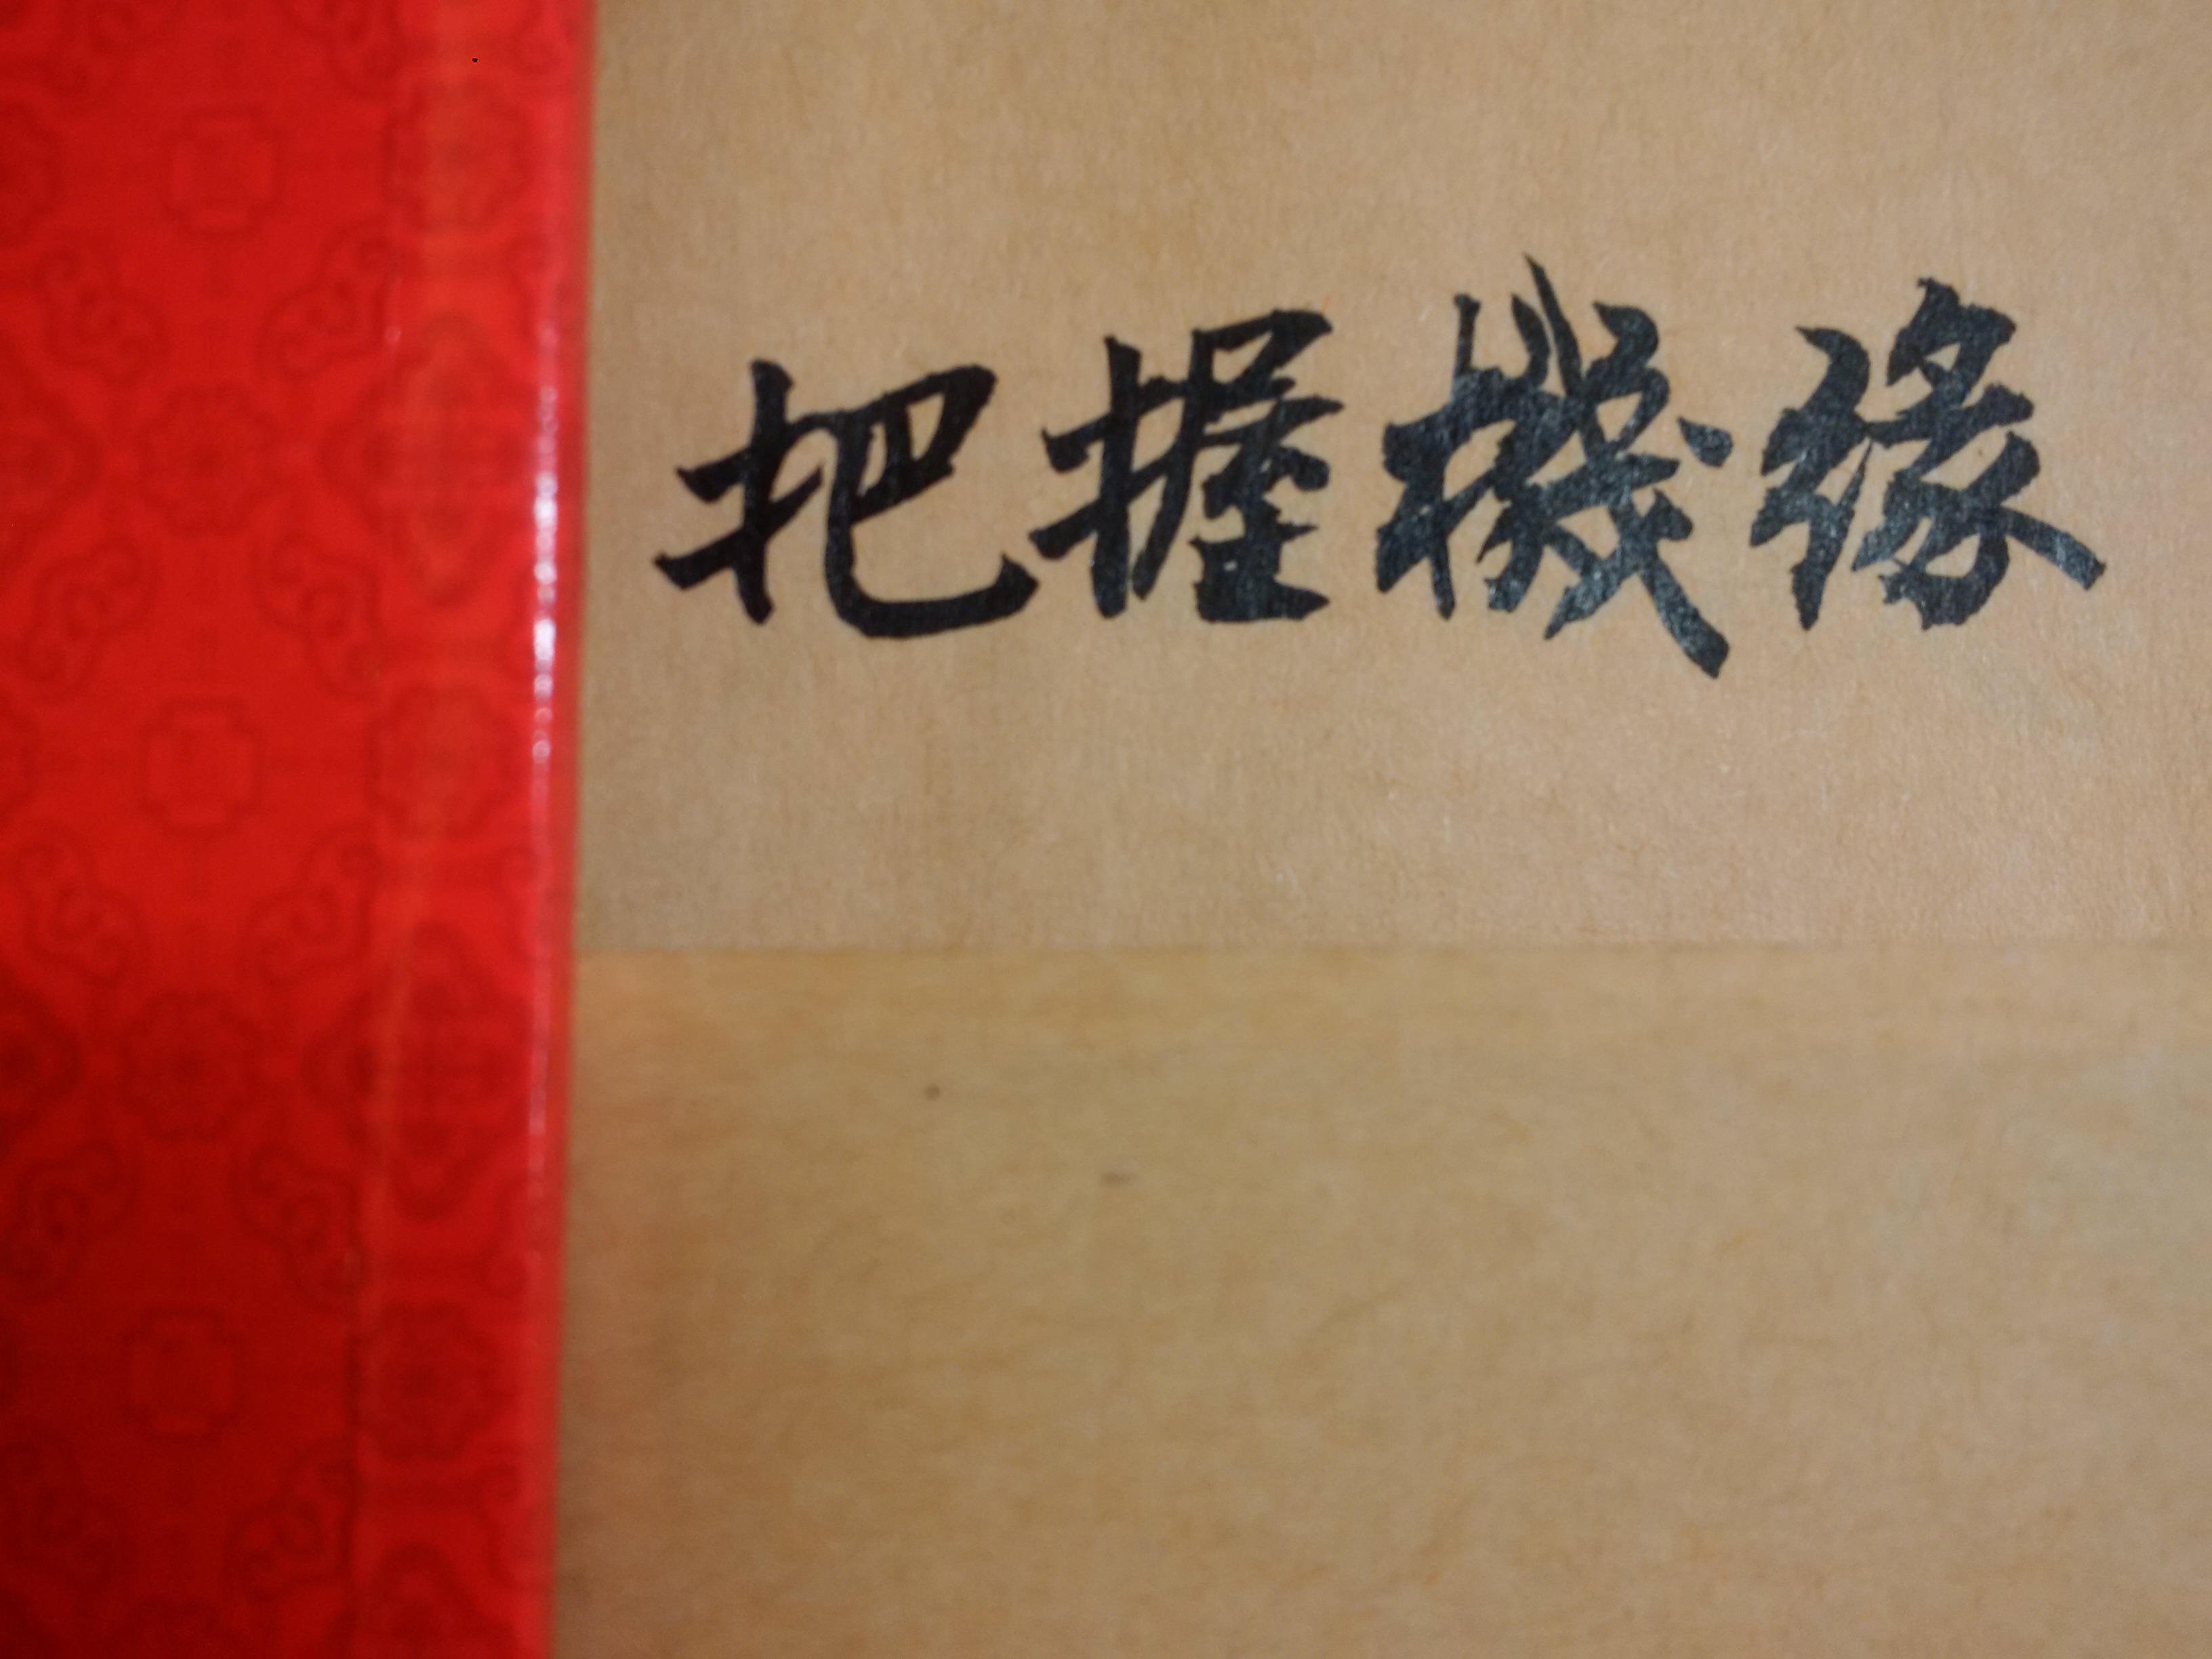 把握機緣